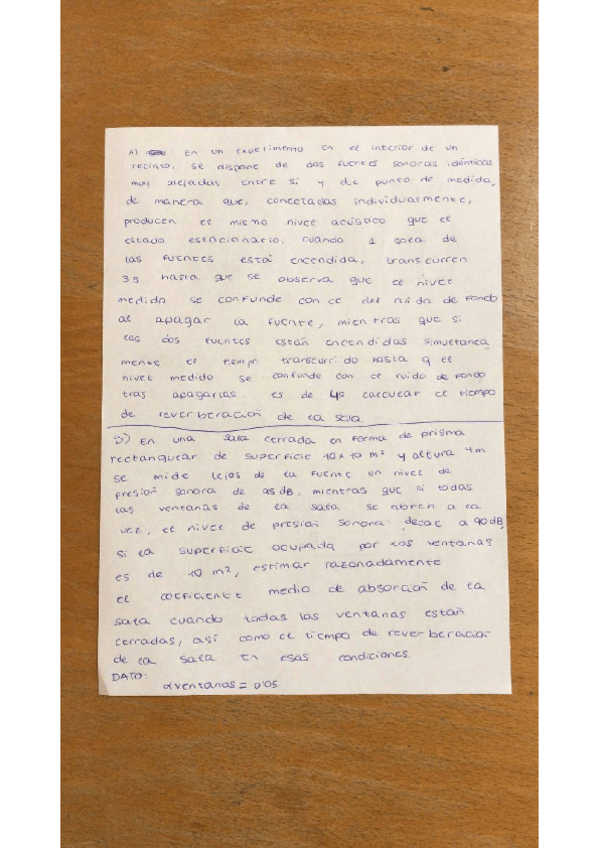 A) En un experimento en el interior de un
recinto, se dispone de dos fuentes sonoras idénticas
muy alejadas entre sí y del punto de medida,
de manera que, conectadas individualmente,
producen el mismo nivel acústico que el
estado estacionario. Cuando 1 sola de
las fuentes está encendida, transcurren
3s hasta que se observa que el nivel
medido se confunde con el del ruido de fondo
al apagar la fuente, mientras que si
las dos fuentes están encendidas simultanea
mente el tiempo transcurrido hasta q el
nivel medido se confunde con el ruido de fondo
tras apagarlas es de 4s calcular el tiempo
de reverberación de la sala
B) En una sala cerrada en forma de prisma
rectangular de superficie 10x10 m² y altura 4m
se mide lejos de la fuente un nivel de
presión sonora de 95 dB, mientras que si todas
las ventanas de la sala se abren a la
vez, el nivel de presión sonora decae a 90 dB,
si la superficie ocupada por las ventanas
es de 10 m², estimar razonadamente
el coeficiente medio de absorción de la
sala cuando todas las ventanas están
cerradas, así como el tiempo de reverberación
de la sala en esas condiciones.
DATO:
αventanas = 0'05